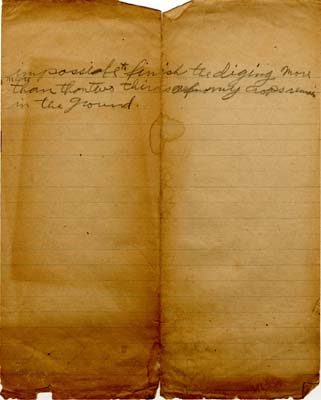 impossiable to finish the diging More
than two thirds of my crops remain
in the ground.